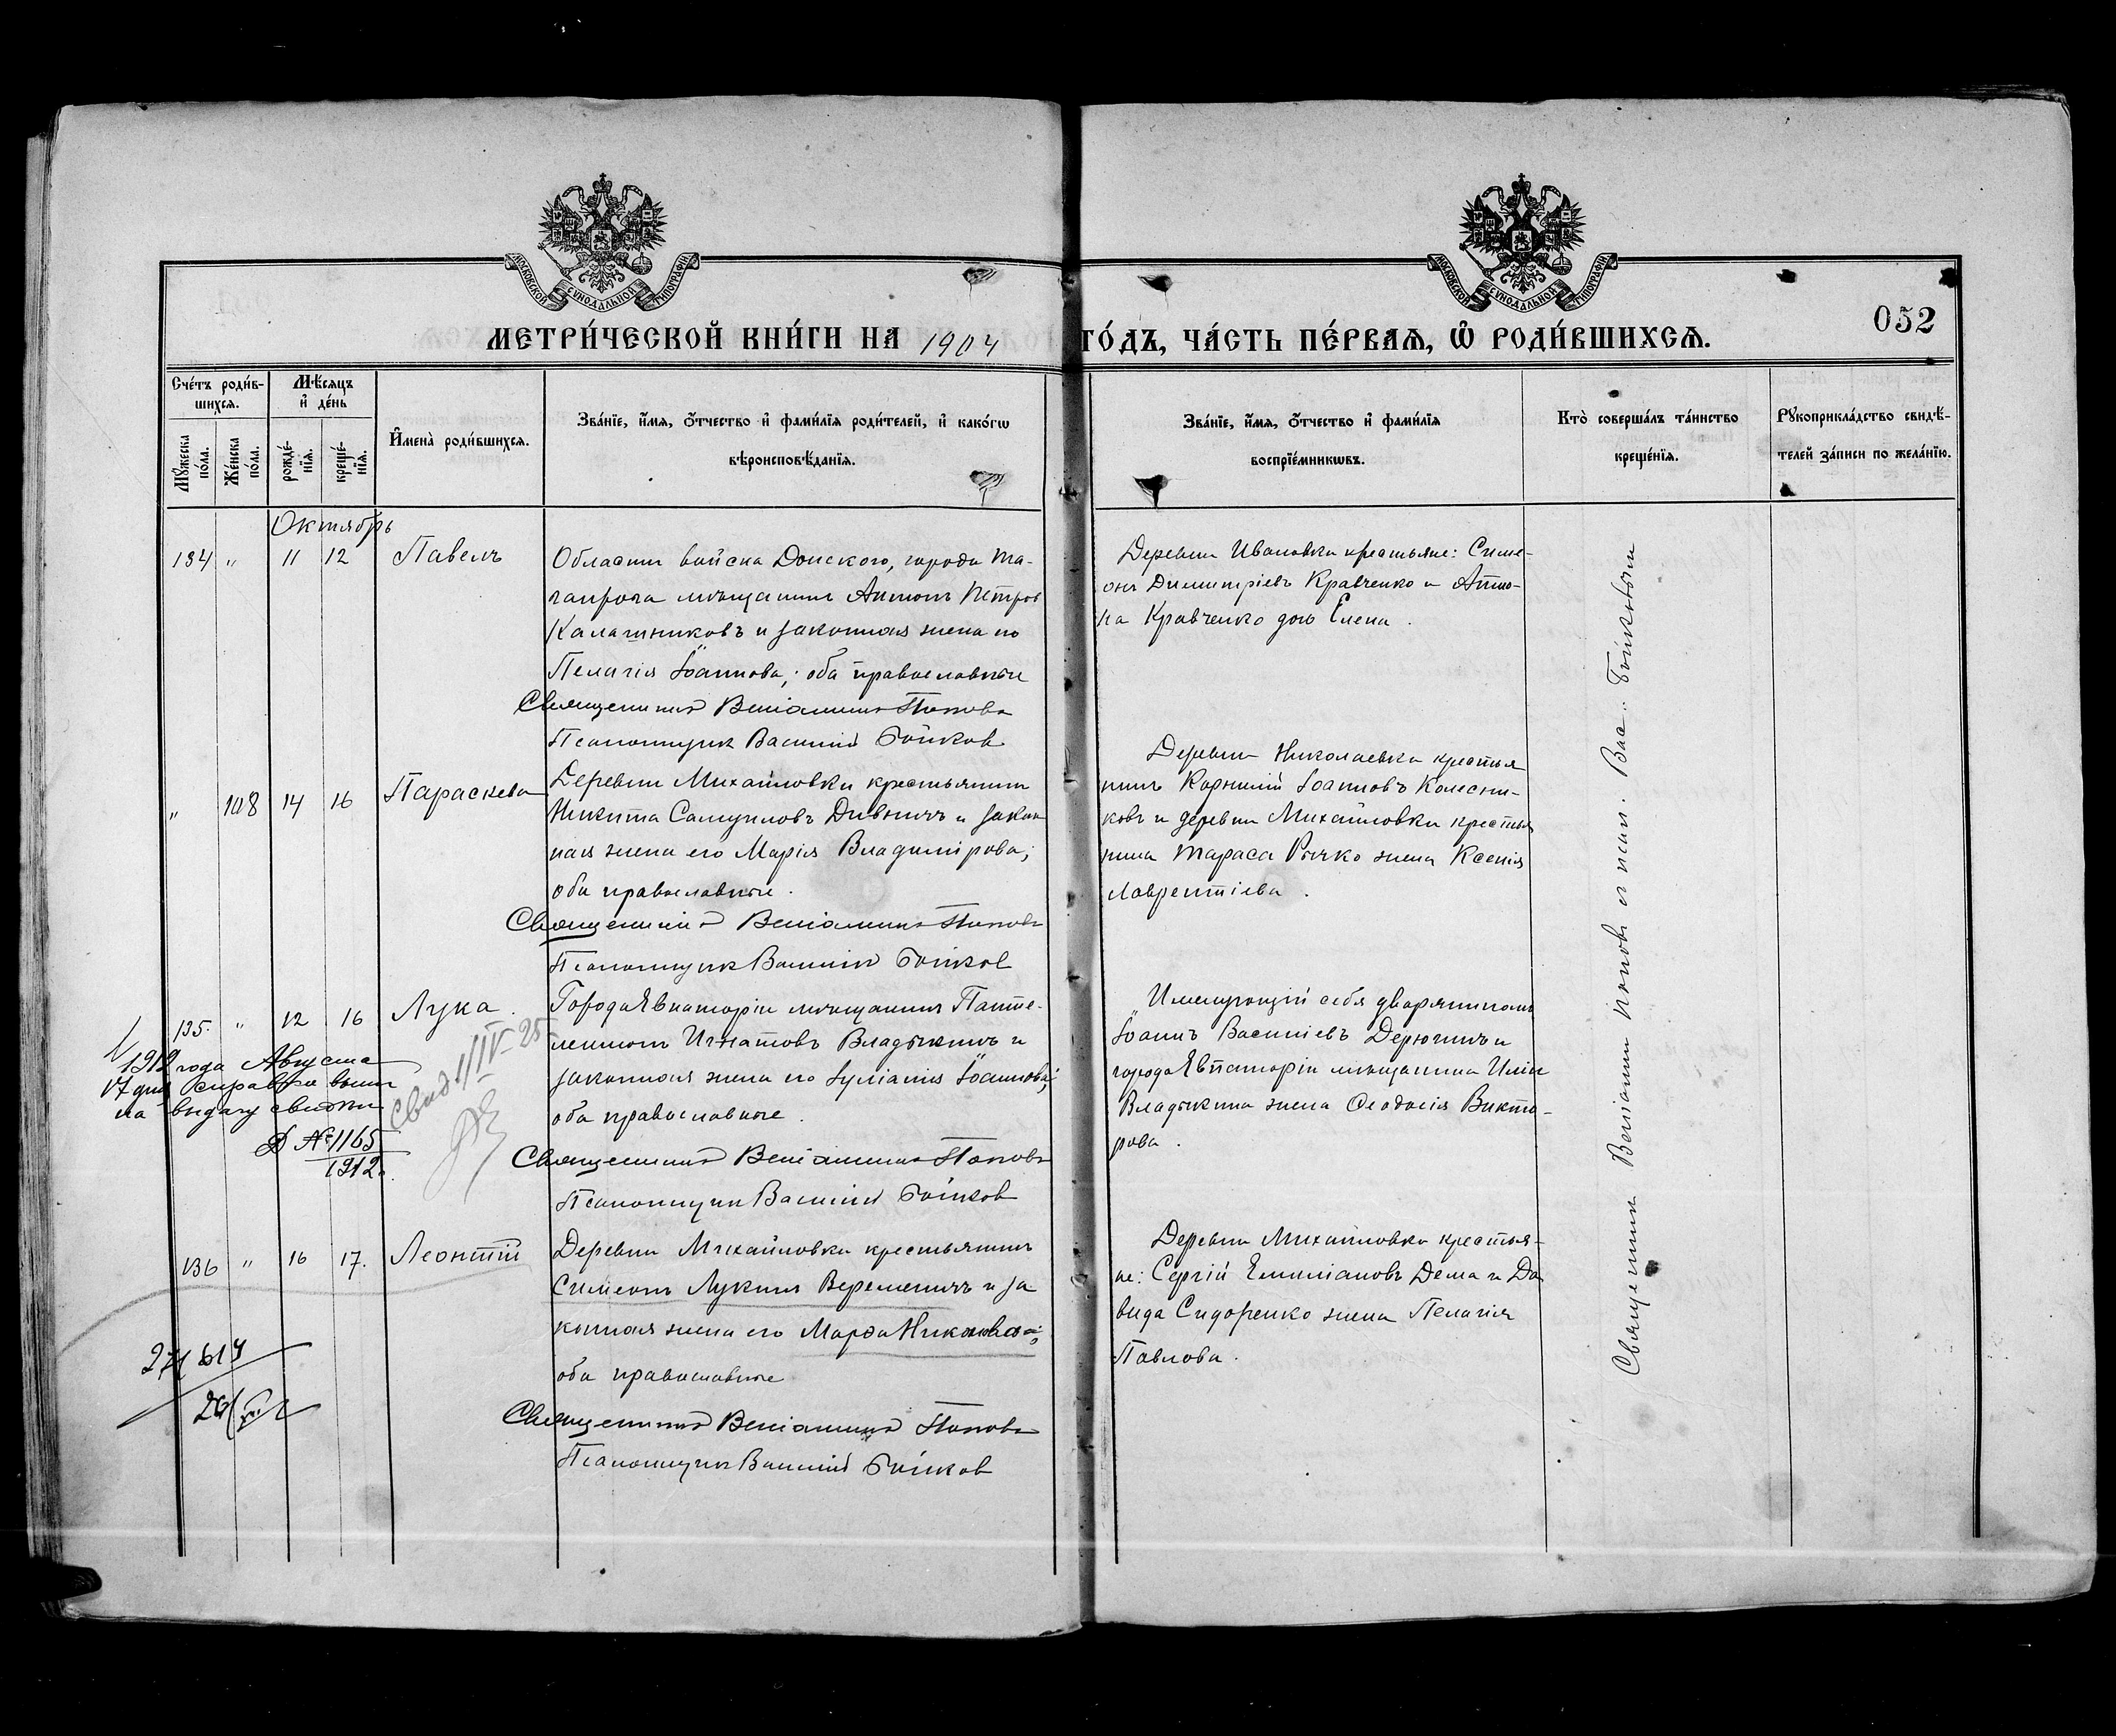 МОСКОВСКОЙ СѴНОДАЛЬНОЙ ТИПОГРАФІИ
МОСКОВСКОЙ СѴНОДАЛЬНОЙ ТИПОГРАФІИ
МЕТРИ́ЧЕСКОЙ КНИ́ГИ НА 1904 ГО́ДЪ, ЧА́СТЬ ПЕ́РВАЯ, Ѡ РОДИ́ВШИХСЯ.
052
Сче́тъ роди́в-
шихся.
Мꙋ́жеска
по́ла.
Же́нска
по́ла.
Мѣ́сяцъ
и де́нь
рожде́-
нїя.
креще́-
нїя.
Имена̀ роди́вшихся.
Зва́нїе, и́мя, ѻ́тчество и фами́лїя роди́телей, и како́гѡ
вѣроисповѣ́данїя.
Зва́нїе, и́мя, ѻ́тчество и фами́лїя
воспрїе́мникѡвъ.
Кто̀ соверша́лъ та́инство
креще́нїя.
Рꙋкоприкла́дство свидѣ́-
телей за́писи по жела́нїю.
Октябрь
134 " 11 12 Павелъ
Области войска Донского, города Та-
ганрога мѣщанинъ Антонъ Петровъ
Калашниковъ и законная жена его
Пелагія Іоаннова; оба православные
Священникъ Веніаминъ Поповъ
Псаломщикъ Василій Бойков
Деревни Ивановки крестьяне: Симе-
онъ Димитріевъ Кравченко и
Кравченко дочь Елена.
" 108 14 16 Параскева
Деревни Михайловки крестьянинъ
Никита Самуиловъ и закон
ная жена его Марія Владимірова;
оба православные.
Священникъ Веніаминъ Поповъ
Псаломщикъ Василій Бойков
Деревни Николаевки крестья
нинъ Корнилій Іоанновъ Колесни-
ковъ и деревни Михайловки крестья
нина Тараса Рычко жена Ксенія
Лаврентіева.
135. " 12 16 Лука.
Города Евпаторіи мѣщанинъ Панте-
леимонъ Игнатовъ Владыкинъ и
законная жена его Іуліанія Іоаннова;
оба православные.
Священникъ Веніаминъ Поповъ
Псаломщикъ Василій Бойков
Именующій себя дворяниномъ
Іоаннъ Василіевъ Дерюгинъ и
города Евпаторіи мѣщанина Иліи
Владыкина жена Ѳеодосія Викто-
рова.
1912 года Августа
17 дня справка
на выдачу
Д №1165
1912.
Свид 1/IV-25
136 " 16 17. Леонтій
Деревни Михайловки крестьянинъ
Симеонъ Лукинъ Веременичъ и за
конная жена его Марѳа Никонова;
оба православные
Священникъ Веніаминъ Поповъ
Псаломщикъ Василій Бойков
Деревни Михайловки крестья-
не: Сергій Емиліановъ Дема и Да
вида Сидоренко жена Пелагія
Павлова.
Священникъ Веніаминъ Поповъ съ псал. Вас. Бойковымъ